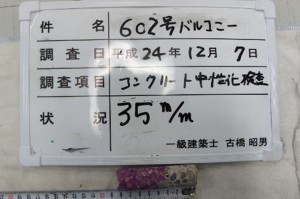 件名 602号バルコニー
調査日 平成24年12月7日
調査項目 コンクリート中性化検査
状況 35 m/m
一級建築士 古橋 昭男